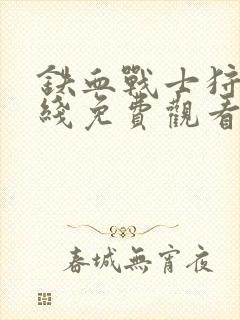 鉄血戰士狩
綫免費觀看
春城無宵夜